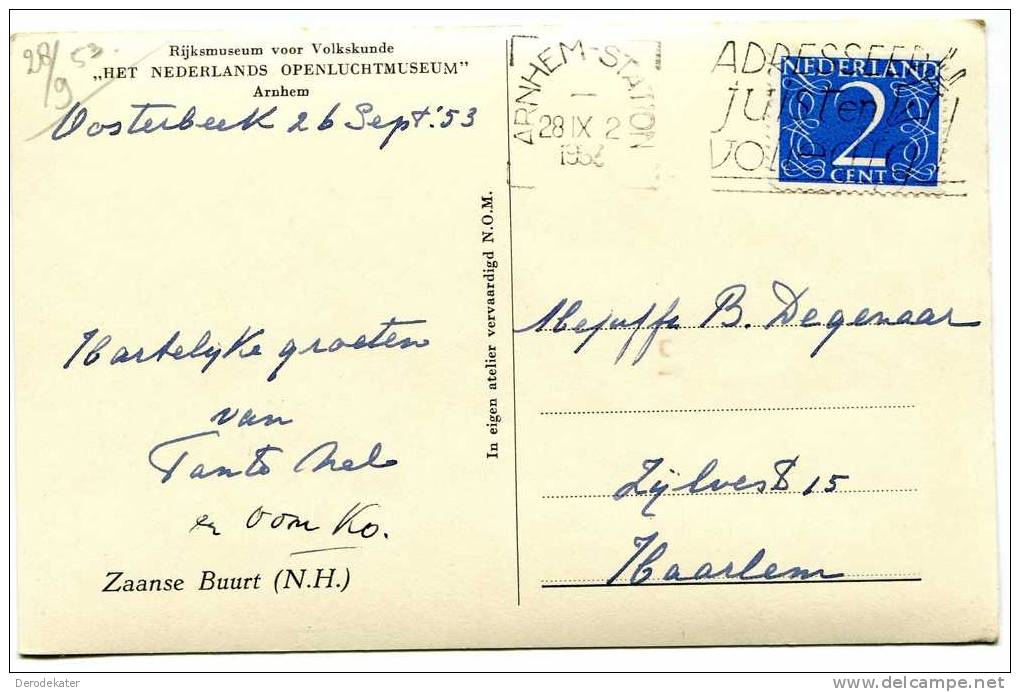 28/9 53.
Rijksmuseum voor Volkskunde
„HET NEDERLANDS OPENLUCHTMUSEUM”
Arnhem
Oosterbeek 26 Sept. '53
Hartelyke groeten
van
Tante Nel
en Oom Ko.
Zaanse Buurt (N.H.)
In eigen atelier vervaardigd N.O.M.
ARNHEM-STATION
28 IX 2
ADRESSEER
JUIST en
NEDERLAND
2
CENT
Mejuffr B. Degenaar
Zijlvest 15
Haarlem
Derodekater
delcampe.net